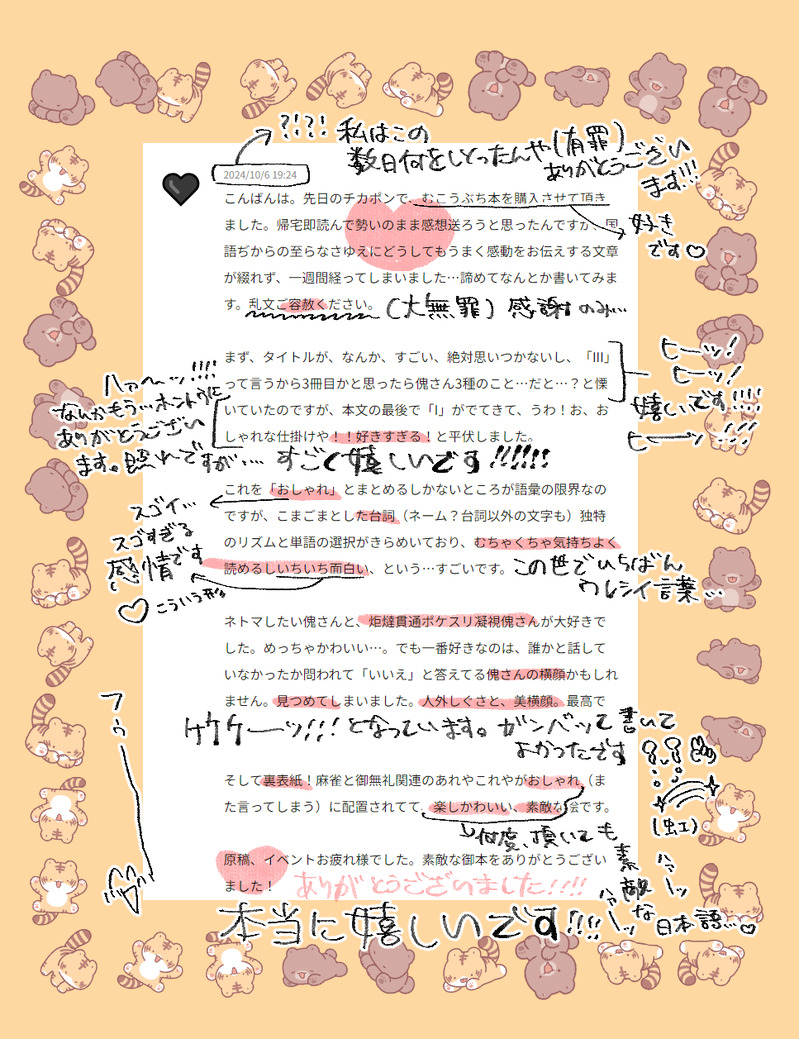 ?!?! 私はこの
数日何をしとったんや(有罪)
ありがとうござい
ます!!!
2024/10/6 19:24
こんばんは。先日のチカポンで、むこうぶち本を購入させて頂き
ました。帰宅即読んで勢いのまま感想送ろうと思ったんですが、国
語ぢからの至らなさゆえにどうしてもうまく感動をお伝えする文章
が綴れず、一週間経ってしまいました…諦めてなんとか書いてみま
す。乱文ご容赦ください。
好き
です♡
(大無罪)感謝のみ…
まず、タイトルが、なんか、すごい、絶対思いつかないし、「III」
って言うから3冊目かと思ったら傀さん3種のこと…だと…?と慄
いていたのですが、本文の最後で「I」がでてきて、うわ!お、お
しゃれな仕掛けや!!好きすぎる!と平伏しました。
ヒーッ!
ヒーッ!
嬉しいです!!!!
ヒーッ!!!
ハァーッ!!!!
なんかもう…ホントウに
ありがとうござい
ます。照れですが… すごく嬉しいです!!!!!!
これを「おしゃれ」とまとめるしかないところが語彙の限界なの
ですが、こまごまとした台詞(ネーム?台詞以外の文字も)独特
のリズムと単語の選択がきらめいており、むちゃくちゃ気持ちよく
読めるしいちいち面白い、という…すごいです。
スゴイ…
スゴすぎる
感情です
♡こういう形
この世でいちばん
ウレシイ言葉…
ネトマしたい傀さんと、炬燵貫通ポケスリ凝視傀さんが大好きで
した。めっちゃかわいい…。でも一番好きなのは、誰かと話して
いなかったか問われて「いいえ」と答えてる傀さんの横顔かもしれ
ません。見つめてしまいました。人外しぐさと、美横顔。最高で
ケケケーーッ!!! となっています。ガンバッて書いて
よかったです
フゥ
そして裏表紙!麻雀と御無礼関連のあれやこれやがおしゃれ(ま
た言ってしまう)に配置されてて、楽しかわいい、素敵な絵です。
(虹)
何度頂いても
素敵
な日本語…♡
ハァーッ
ハァーッ
原稿、イベントお疲れ様でした。素敵な御本をありがとうござい
ました!
ありがとうございました!!!!
本当に嬉しいです!!!